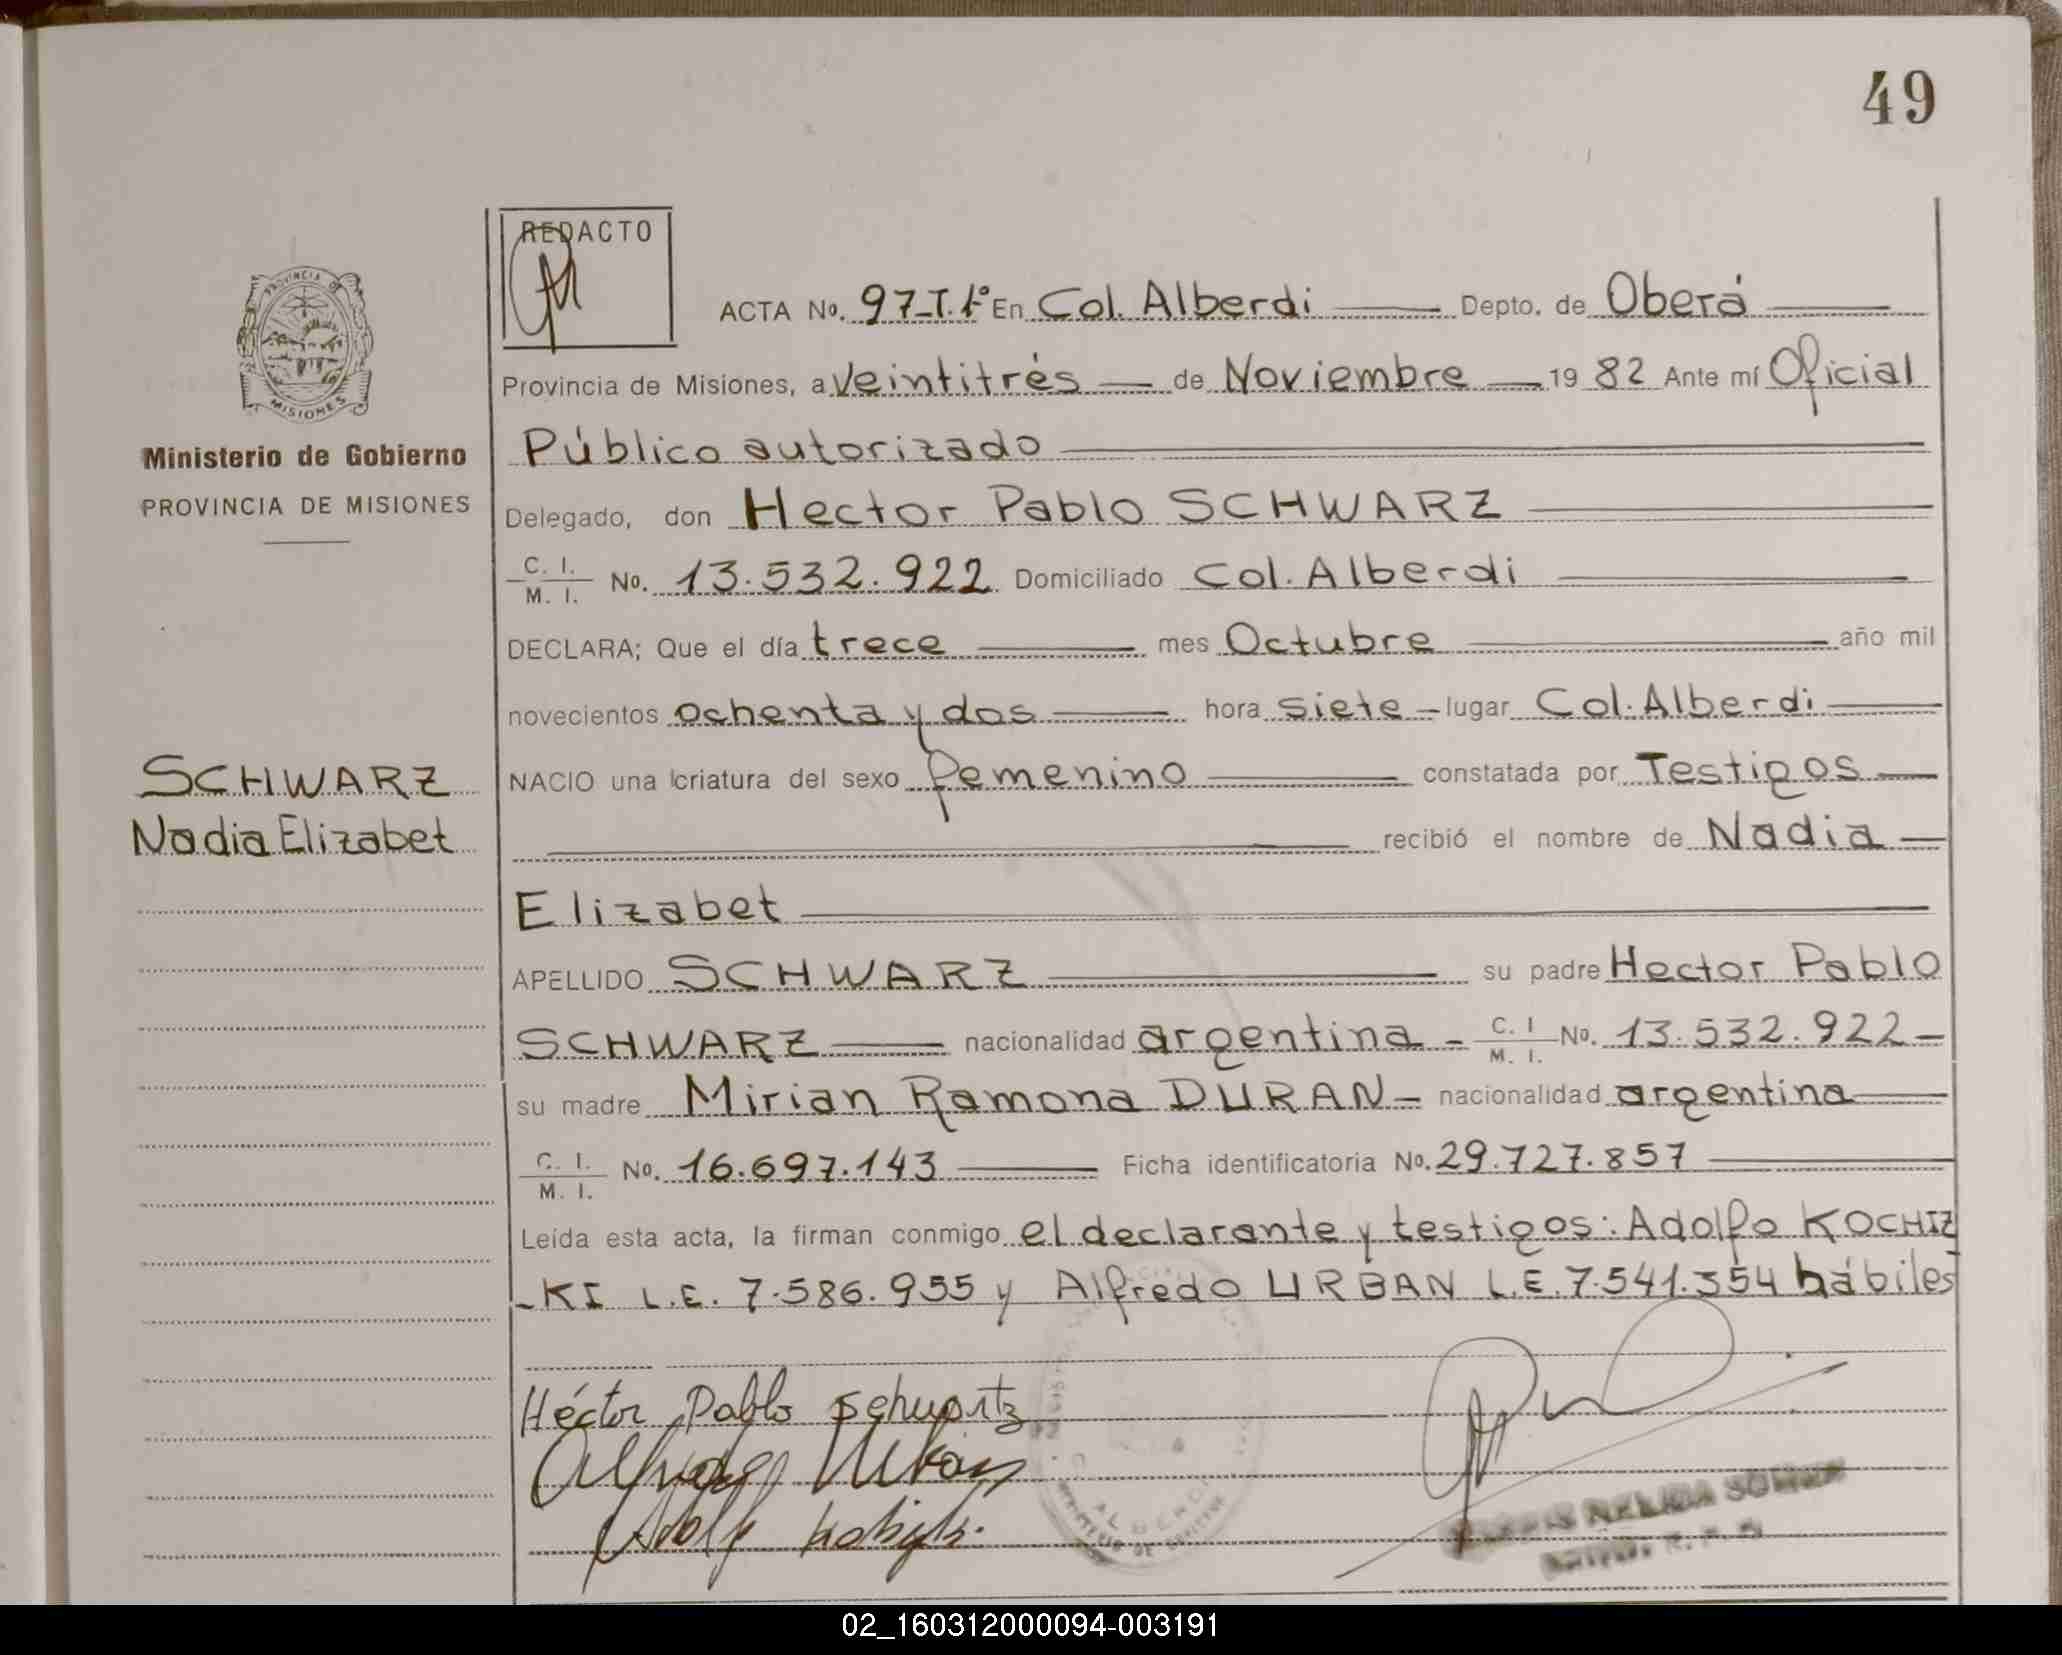 49
REDACTO
PROVINCIA DE
MISIONES
Ministerio de Gobierno
PROVINCIA DE MISIONES
SCHWARZ
Nadia Elizabet
ACTA No. 97-T.1º En Col. Alberdi Depto. de Oberá
Provincia de Misiones, a veintitrés de Noviembre 19 82 Ante mí Oficial
Público autorizado
Delegado, don Hector Pablo SCHWARZ
C. I. / M. I. No. 13.532.922 Domiciliado Col. Alberdi
DECLARA; Que el día trece mes Octubre año mil
novecientos ochenta y dos hora siete lugar Col. Alberdi
NACIO una criatura del sexo femenino constatada por Testigos
recibió el nombre de Nadia
Elizabet
APELLIDO SCHWARZ su padre Hector Pablo
SCHWARZ nacionalidad argentina - C. I / M. I. No. 13.532.922-
su madre Mirian Ramona DURAN - nacionalidad argentina
C. I. / M. I. No. 16.697.143 Ficha identificatoria No. 29.727.857
Leída esta acta, la firman conmigo el declarante y testigos: Adolfo KOCHIZ
-KI L.E. 7.586.955 y Alfredo URBAN L.E. 7.541.354 hábiles
Héctor Pablo Schwartz
Alfredo Urban
ALBERDI
NELIDA
02_160312000094-003191